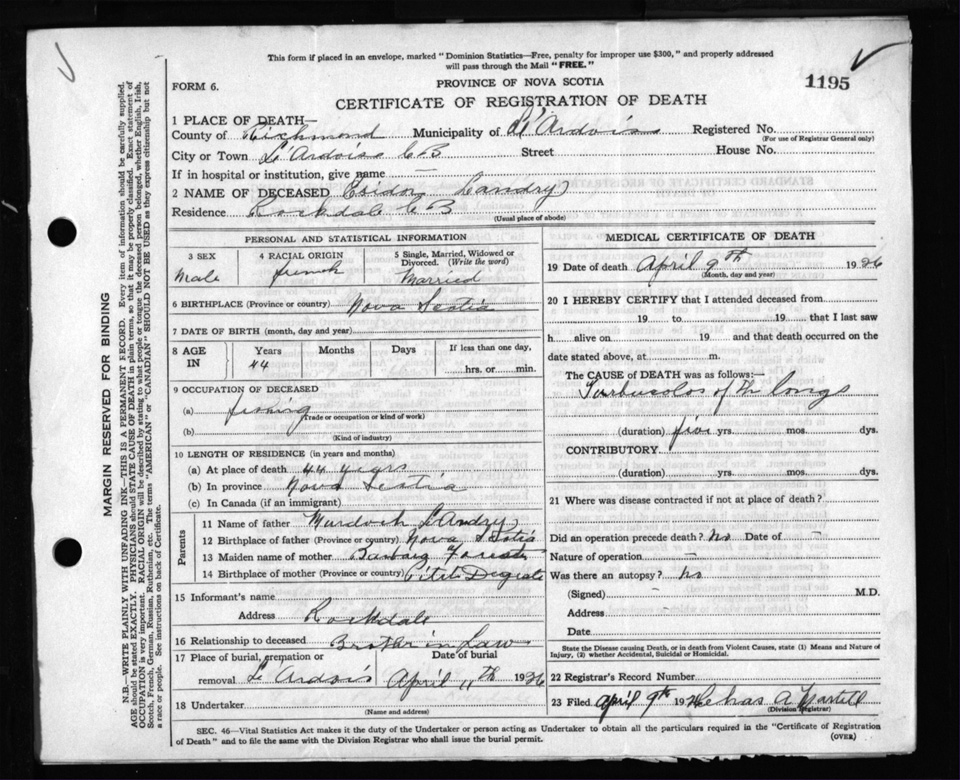 This form if placed in an envelope, marked "Dominion Statistics—Free, penalty for improper use $300," and properly addressed
will pass through the Mail "FREE."
FORM 6.
PROVINCE OF NOVA SCOTIA
1195
CERTIFICATE OF REGISTRATION OF DEATH
1 PLACE OF DEATH—
County of Richmond Municipality of L'Ardois Registered No.
(For use of Registrar General only)
City or Town L'Ardoise C B Street House No.
If in hospital or institution, give name —
2 NAME OF DECEASED Esidor Landry
Residence Rockdale C B
(Usual place of abode)
PERSONAL AND STATISTICAL INFORMATION
3 SEX 4 RACIAL ORIGIN 5 Single, Married, Widowed or
Divorced. (Write the word)
Male french Married
6 BIRTHPLACE (Province or country) Nova Scotia
7 DATE OF BIRTH (month, day and year)
8 AGE IN Years Months Days If less than one day,
44 hrs. or min.
9 OCCUPATION OF DECEASED
(a) fishing
(Trade or occupation or kind of work)
(b)
(Kind of industry)
10 LENGTH OF RESIDENCE (in years and months)
(a) At place of death 44 years
(b) In province Nova Scotia
(c) In Canada (if an immigrant)
Parents
11 Name of father Murdoch LAndry
12 Birthplace of father (Province or country) Nova Scotia
13 Maiden name of mother
14 Birthplace of mother (Province or country) Pitit Degrate
15 Informant's name
Address Rockdale
16 Relationship to deceased Brother in Law
17 Place of burial, cremation or Date of burial
removal L'Ardois April 11th 1926
18 Undertaker
(Name and address)
MEDICAL CERTIFICATE OF DEATH
19 Date of death April 9th 1926
(Month, day and year)
20 I HEREBY CERTIFY that I attended deceased from
19 to 19 that I last saw
h alive on 19 and that death occurred on the
date stated above, at m.
The CAUSE of DEATH was as follows:—
of th longs
(duration) five yrs. mos. dys.
CONTRIBUTORY
(duration) yrs. mos. dys.
21 Where was disease contracted if not at place of death?
Did an operation precede death? No Date of —
Nature of operation —
Was there an autopsy? No
(Signed) — M.D.
Address
Date
State the Disease causing Death, or in death from Violent Causes, state (1) Means and Nature of
Injury, (2) whether Accidental, Suicidal or Homicidal.
22 Registrar's Record Number
23 Filed April 9th 1926 A
(Division Registrar)
SEC. 46—Vital Statistics Act makes it the duty of the Undertaker or person acting as Undertaker to obtain all the particulars required in the "Certificate of Registration
of Death" and to file the same with the Division Registrar who shall issue the burial permit.
(OVER)
MARGIN RESERVED FOR BINDING
N.B.—WRITE PLAINLY WITH UNFADING INK—THIS IS A PERMANENT RECORD. Every item of information should be carefully supplied.
AGE should be stated EXACTLY. PHYSICIANS should STATE CAUSE OF DEATH in plain terms, so that it may be properly classified. Exact statement of
OCCUPATION is very important. RACIAL ORIGIN will be described by stating to what people or tongue the deceased person belonged, whether English, Irish,
Scotch, French, German, Russian, Ruthenian, etc. The terms "AMERICAN" or "CANADIAN" SHOULD NOT BE USED as they express citizenship but not
a race or people. See instructions on back of Certificate.